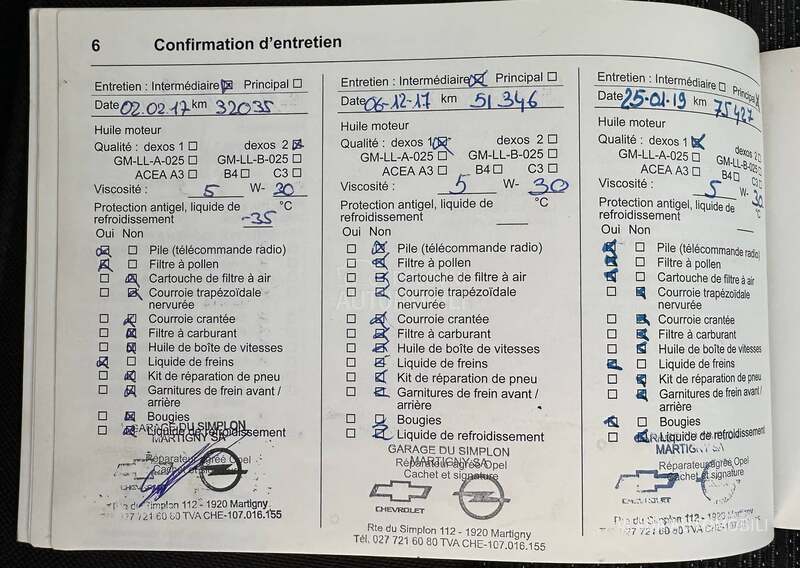 6 Confirmation d'entretien
Entretien : Intermédiaire ☒ Principal ☐
Date 02.02.17 km 32035
Huile moteur
Qualité : dexos 1 ☐ dexos 2 ☒
GM-LL-A-025 ☐ GM-LL-B-025 ☐
ACEA A3 ☐ B4 ☐ C3 ☐
Viscosité : 5 W- 30
Protection antigel, liquide de
refroidissement -35 °C
Oui Non
☒ ☐ Pile (télécommande radio)
☒ ☐ Filtre à pollen
☐ ☒ Cartouche de filtre à air
☐ ☒ Courroie trapézoïdale
nervurée
☐ ☒ Courroie crantée
☐ ☒ Filtre à carburant
☐ ☒ Huile de boîte de vitesses
☒ ☐ Liquide de freins
☐ ☒ Kit de réparation de pneu
☐ ☒ Garnitures de frein avant /
arrière
☐ ☒ Bougies
☐ ☒ Liquide de refroidissement
GARAGE DU SIMPLON
MARTIGNY SA
Réparateur agréé Opel
Cachet et signature
Rte du Simplon 112 - 1920 Martigny
Tél. 027 721 60 80 TVA CHE-107.016.155
Entretien : Intermédiaire ☒ Principal ☐
Date 06-12-17 km 51 346
Huile moteur
Qualité : dexos 1 ☒ dexos 2 ☐
GM-LL-A-025 ☐ GM-LL-B-025 ☐
ACEA A3 ☐ B4 ☐ C3 ☐
Viscosité : 5 W- 30
Protection antigel, liquide de
refroidissement °C
Oui Non
☐ ☒ Pile (télécommande radio)
☐ ☒ Filtre à pollen
☐ ☒ Cartouche de filtre à air
☐ ☒ Courroie trapézoïdale
nervurée
☐ ☒ Courroie crantée
☐ ☒ Filtre à carburant
☐ ☒ Huile de boîte de vitesses
☐ ☒ Liquide de freins
☐ ☒ Kit de réparation de pneu
☐ ☒ Garnitures de frein avant /
arrière
☐ ☒ Bougies
☐ ☒ Liquide de refroidissement
GARAGE DU SIMPLON
MARTIGNY SA
Réparateur agréé Opel
Cachet et signature
CHEVROLET
Rte du Simplon 112 - 1920 Martigny
Tél. 027 721 60 80 TVA CHE-107.016.155
Entretien : Intermédiaire ☐ Principal ☒
Date 25-01-19 km 75427
Huile moteur
Qualité : dexos 1 ☒ dexos 2 ☐
GM-LL-A-025 ☐ GM-LL-B-025 ☐
ACEA A3 ☐ B4 ☐ C3 ☐
Viscosité : 5 W- 30
Protection antigel, liquide de
refroidissement °C
Oui Non
☒ ☐ Pile (télécommande radio)
☒ ☐ Filtre à pollen
☒ ☐ Cartouche de filtre à air
☐ ☒ Courroie trapézoïdale
nervurée
☐ ☒ Courroie crantée
☐ ☒ Filtre à carburant
☐ ☒ Huile de boîte de vitesses
☒ ☐ Liquide de freins
☐ ☒ Kit de réparation de pneu
☐ ☒ Garnitures de frein avant /
arrière
☒ ☐ Bougies
☐ ☒ Liquide de refroidissement
MARTIGNY SA
Réparateur agréé Opel
Cachet et signature
CHEVROLET
Rte du Simplon 112 - 1920 Martigny
027 721 60 80 TVA CHE-107.016.155